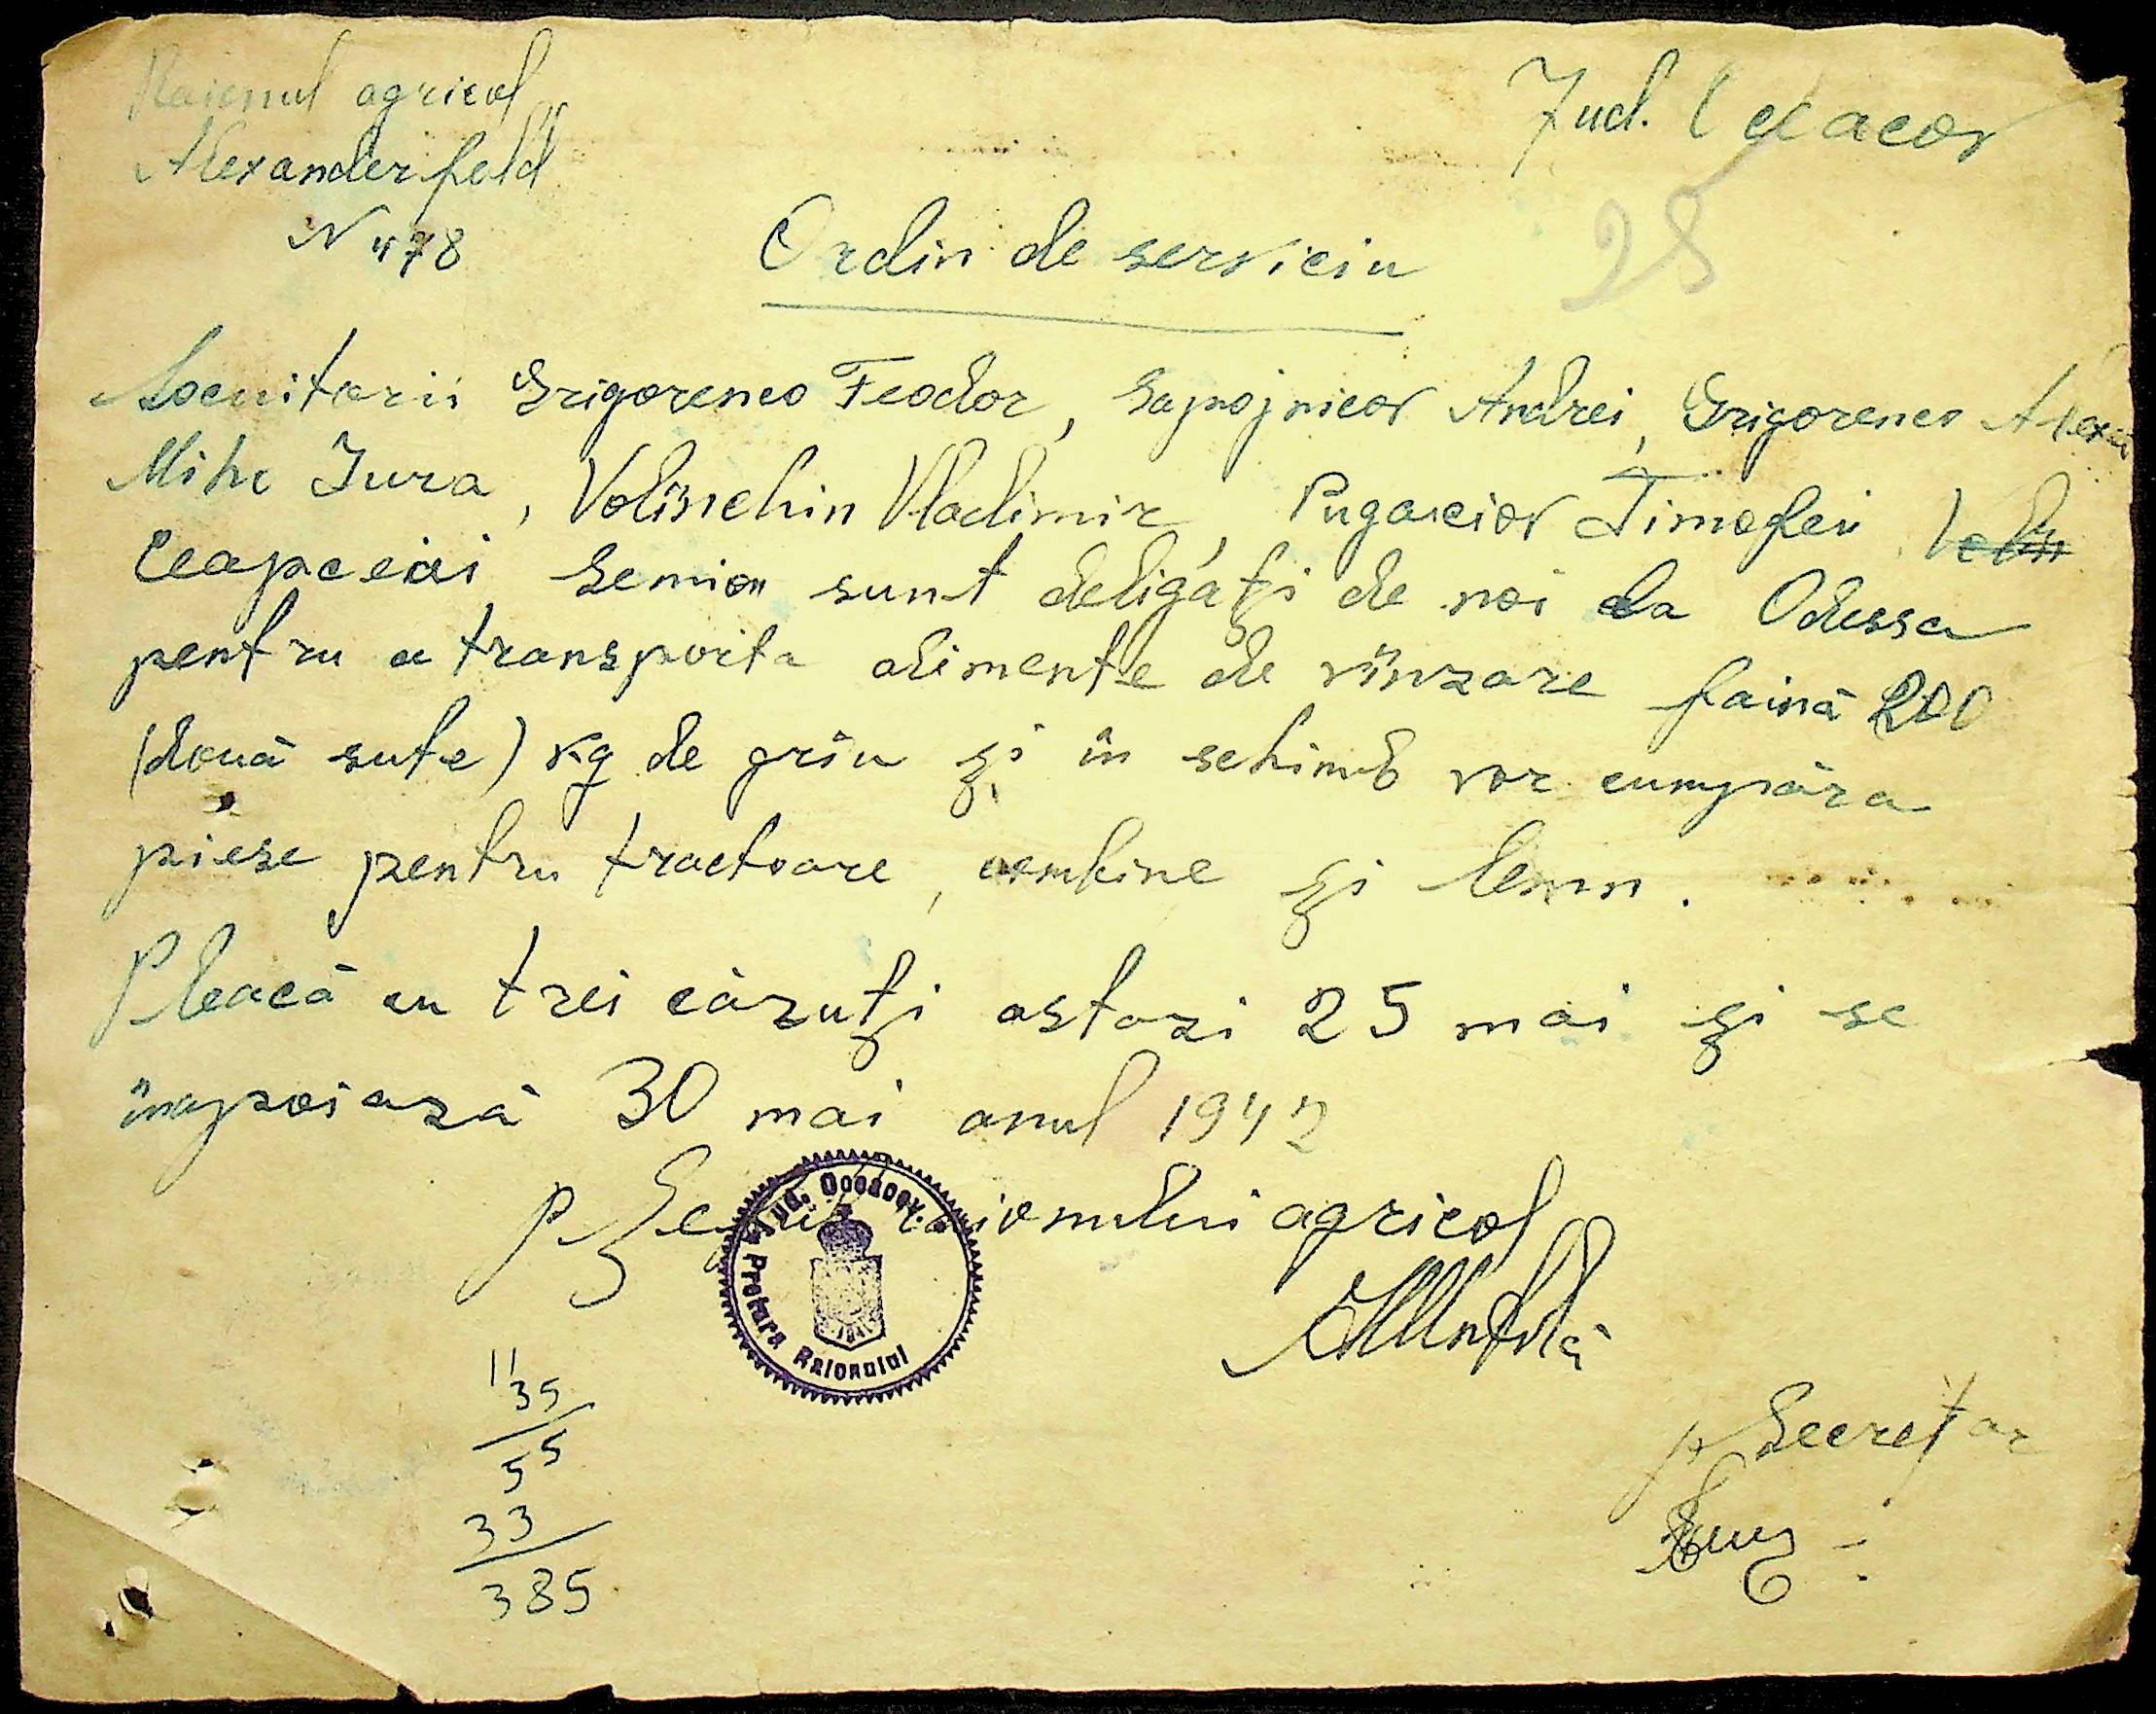 Raionul agricol
Alexanderfeld
N 478
Jud. Oceacov
28
Ordin de serviciu
Locuitorii Grigorenco Feodor, Sapojnicov Andrei, Grigorenco Alexa
Mihe Jura, Volinchin Vladimir, Pugaciov Timofei
Ceapceai Semion sunt deligați de noi la Odessa
pentru a transporta alimente de vînzare faină 200
(două sute) kg de grîu și în schimb vor cumpăra
piese pentru tractoare, combine și lemn.
Pleacă cu trei căruți astazi 25 mai și se
inapoiază 30 mai anul 1942
p Șeful raionului agricol
Jud. Oceacov
Pretura Raionului
p Secretar
11
35
55
33
385